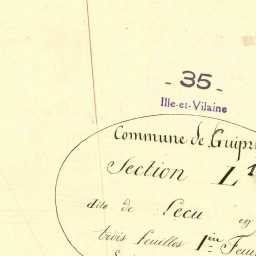 - 35 -
Ille-et-Vilaine
Commune de Guipr
Section L
dite de Lecu en
trois feuilles 1re Feui